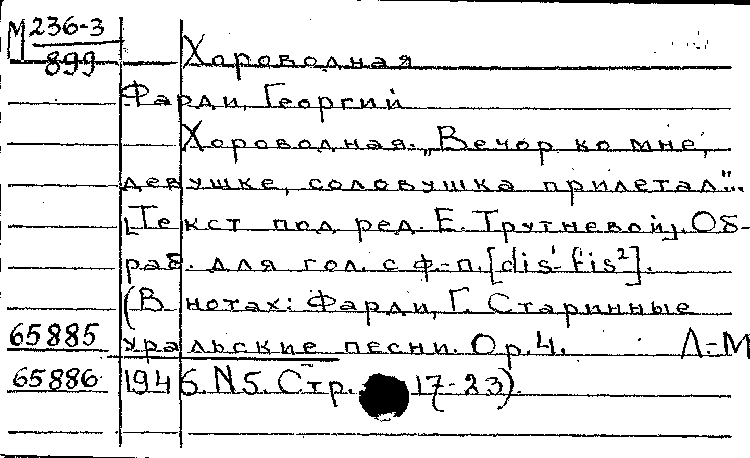 М 236-3
899
Хороводная
Фарди, Георгий
Хороводная. „Вечор ко мне,
девушке, соловушка прилетал"...
[Текст под ред. Е. Трутневой]. Об-
раб. для гол. с ф-п. [dis¹-fis²].
(В нотах: Фарди, Г. Старинные
65885 уральские песни. Ор. 4. Л-М
65886 1946. N5. Стр. 17-23).